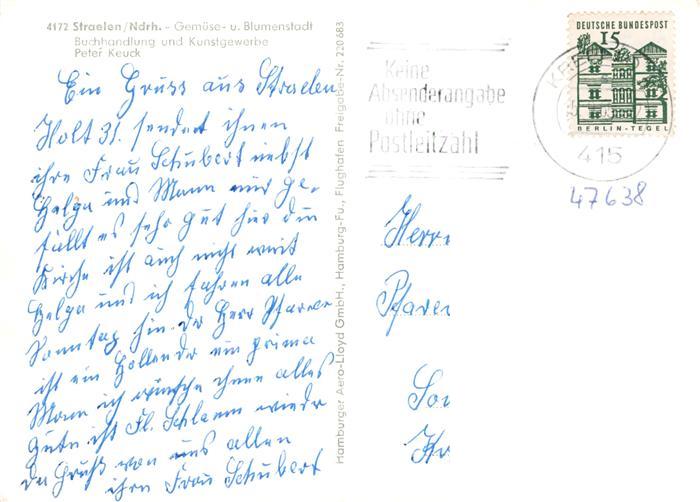 4172 Straelen/Ndrh. - Gemüse- u. Blumenstadt
Buchhandlung und Kunstgewerbe
Peter Keuck
Ein Gruss aus Straelen
Holt 31. sendet ihnen
ihre Frau Schubert nebst
Helga und Mann mir ge-
fällt es sehr gut hier die
Kirche ist auch nicht weit
Helga und ich fahren alle
Sonntag hin. Der Herr Pfarrer
ist ein Hollender ein prima
Mann ich wünsche ihnen alles
Gute ist Fl. wieder
da Gruß von uns allen
ihre Frau Schubert
Hamburger Aero-Lloyd GmbH., Hamburg-Fu., Flughafen Freigabe-Nr. 220 683
Keine
Absenderangabe
ohne
Postleitzahl
DEUTSCHE BUNDESPOST
15
BERLIN-TEGEL
KRE
415
47638
Herrn
Pfarrer